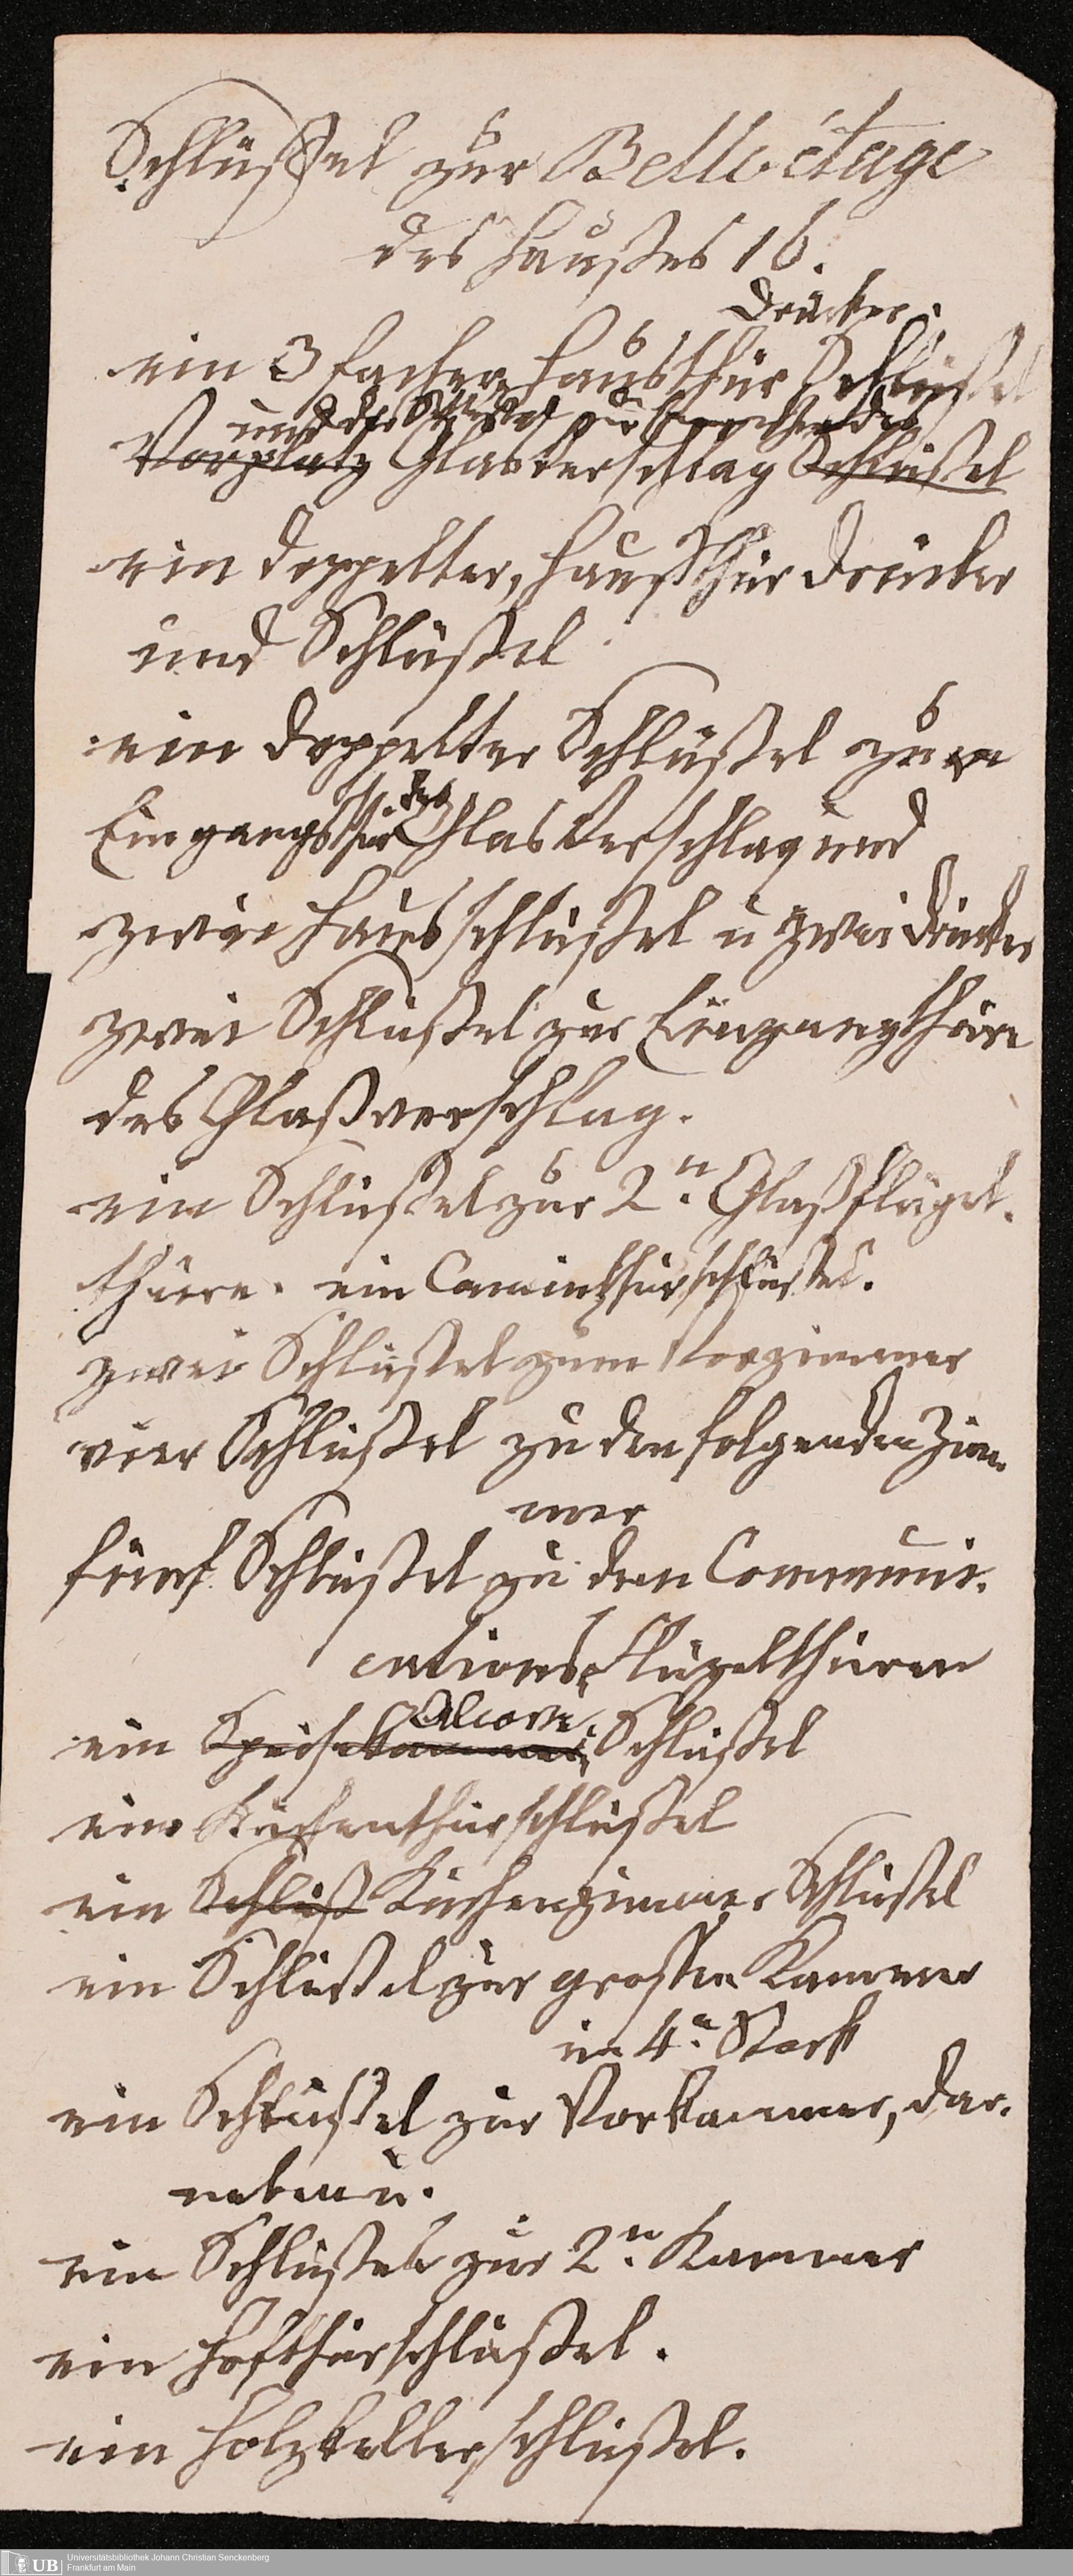 Schlüssel zur Belle étage
des Haußes 16.
Drücker.
ein 3 facher Hausthür Schlüßel
und der Schlüßel zur des
Vorplatz Glasverschlag Schlüßel
ein doppelter, Haußthür Drücker
und Schlüßel
ein doppelter Schlüßel zur
Eingangsthür des Glas Verschlag und
zwei Hausschlüßel u zwei Drücker
zwei Schlüßel zur Eingangthüre
des Glaßverschlag.
ein Schlüßel zur 2n. Glaßflügel.
thüre. ein Caminthürschlüßel.
zwei Schlüßel zum Vorzimmer
vier Schlüßel zu den folgenden Zim.
mer
fünf Schlüßel zu den Communi.
cations Flügelthüren
ein Speisekammer Alcove Schlüßel
ein Küchenthürschlüßel
ein Schlüß Küchenzimmer Schlüßel
ein Schlüßel zur großen Kammer
im 4n Stock
ein Schlüßel zur Vorkammer, dar.
neben u.
ein Schlüßel zur 2n. Kammer
ein Hofthürschlüßel.
ein Holzkellerschlüßel.
UB Universitätsbibliothek Johann Christian Senckenberg
Frankfurt am Main